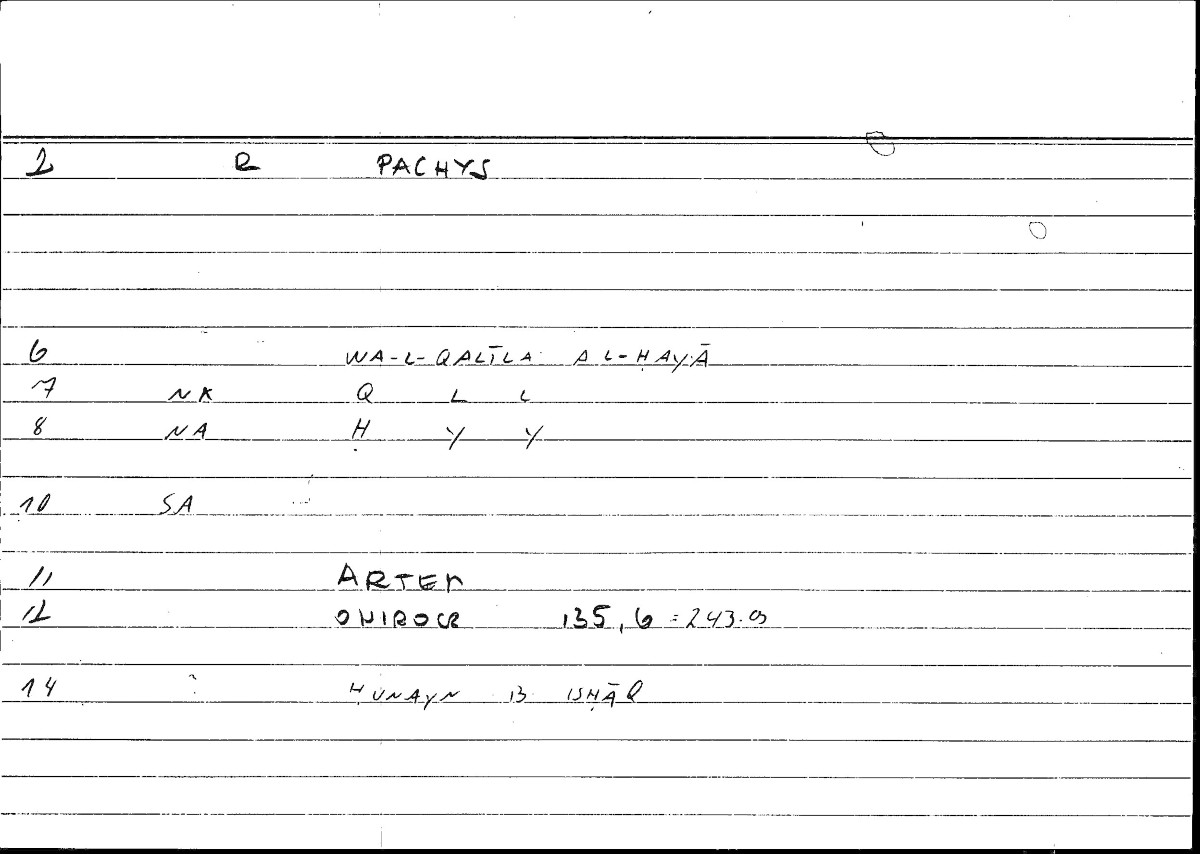 2 R PACHYS
6 WA-L-QALĪLA AL-ḤAYĀ
7 NK Q L L
8 NA Ḥ Y Y
10 SA
11 ARTEM
12 ONIROCR 135,6 = 243.09
14 ḤUNAYN B ISḤĀQ